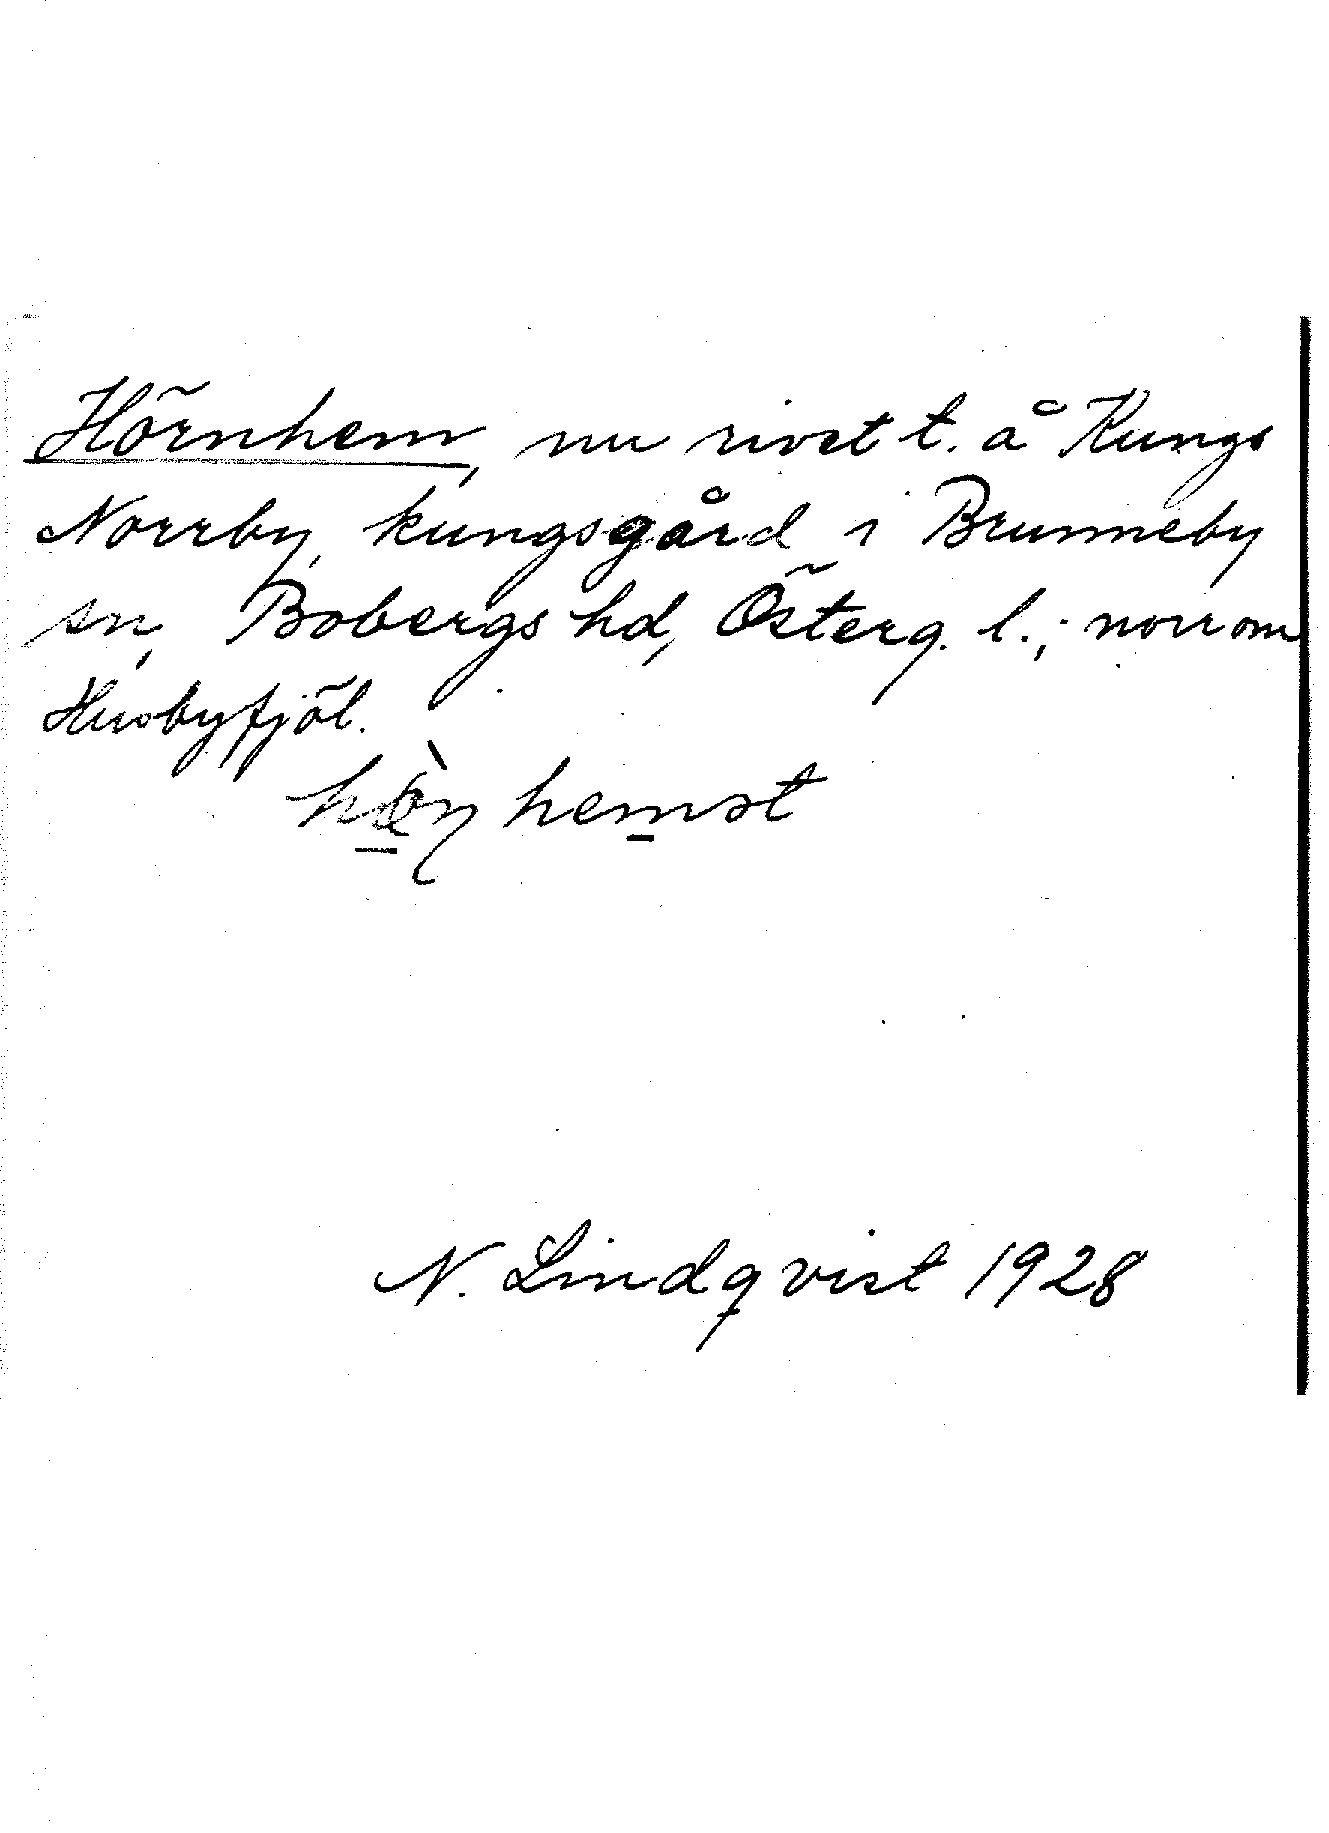 Hörnhem, nu rivet t. å Kungs
Norrby, kungsgård i Brunneby
sn, Bobergs hd, Österg. l.; norr om
Husbyfjöl.
hemst
N. Lindqvist 1928